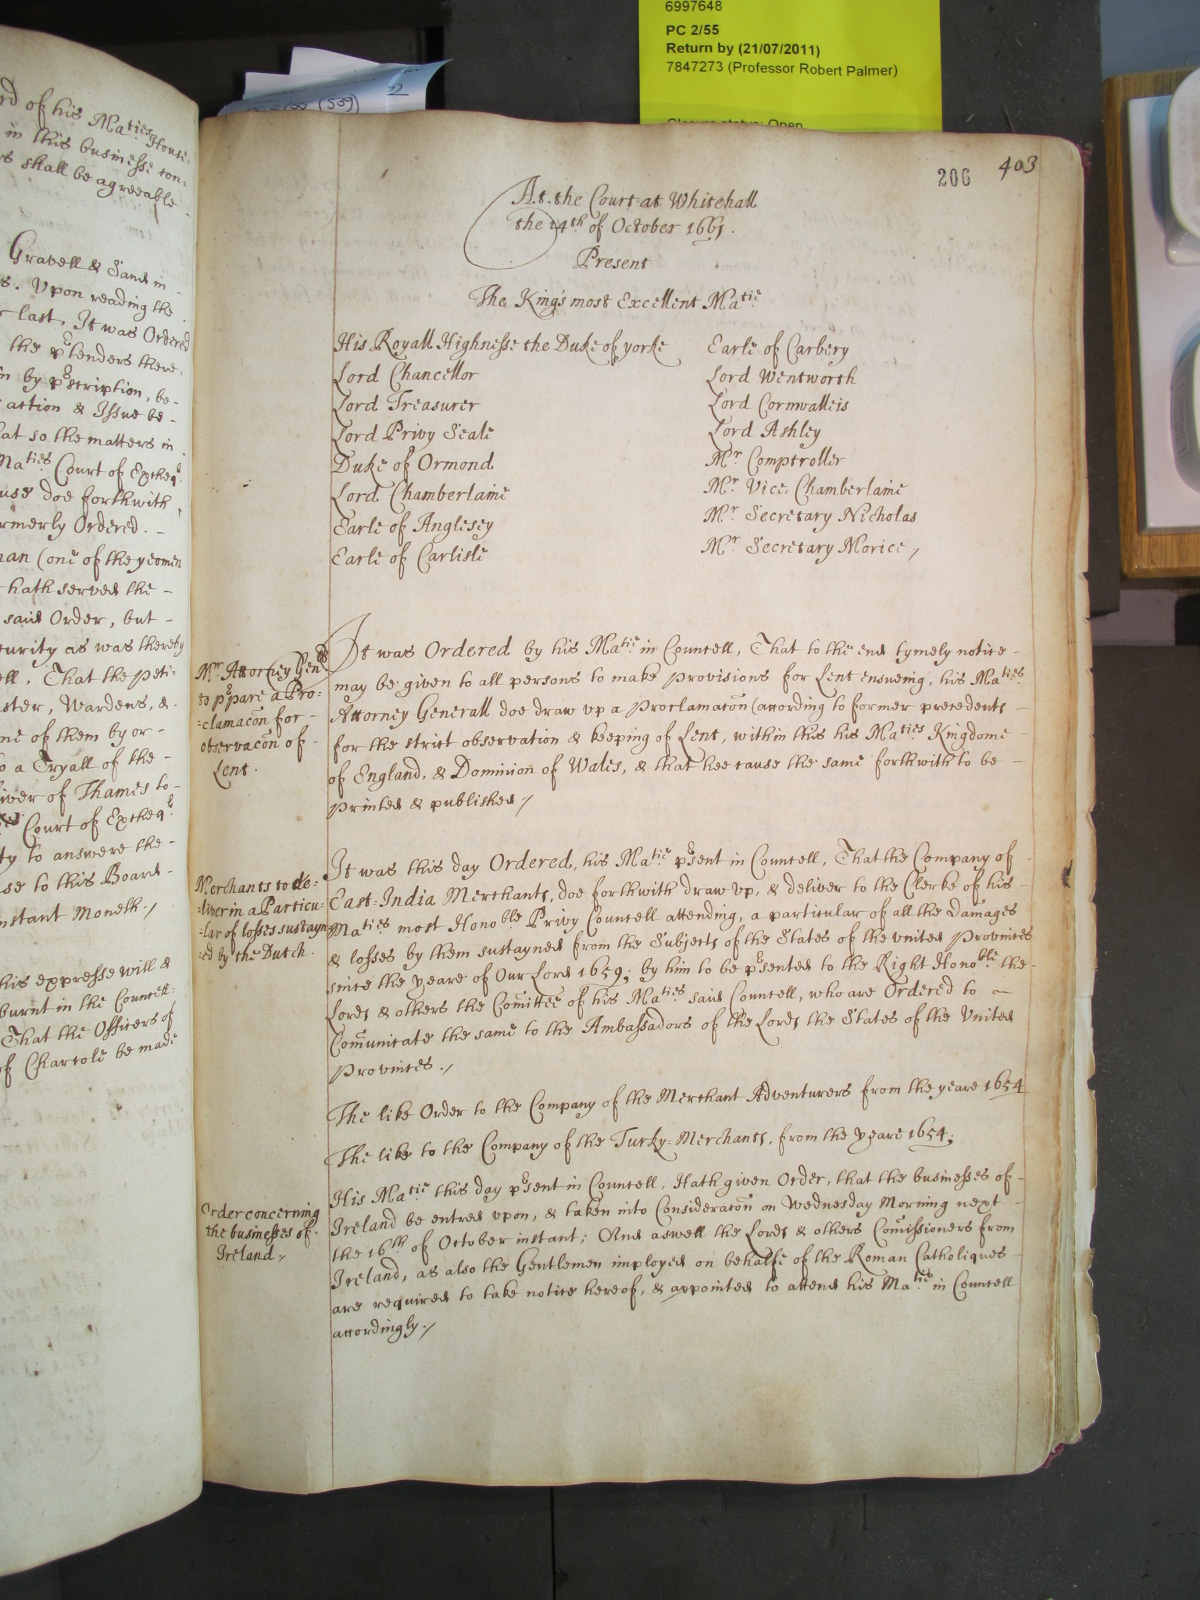 6997648
PC 2/55
Return by (21/07/2011)
7847273 (Professor Robert Palmer)
(539)
22
rd of his Maties House-
in this businesse con=
s shall be agreeable
Gravell & Sand in -
s. Upon reading the
last, It was Ordered
the ptenders there-
in by pscription, be-
action & Issue be-
at so the matters in
Maties Court of Excheqr
use doe forthwith
rmerly Ordered. -
man (one of the yeomen
hath served the -
said Order, but -
curity as was thereby
ell. That the peti-
ster, Wardens, &
one of them by or-
to a Tryall of the -
iver of Thames to-
Court of Excheqr
ty to answere the -
se to this Board -
nstant Moneth./
his expresse will &
burnt in the Councell
That the Officers of
of Charcole be made
206 403
At the Court at Whitehall
the 14th of October 1661.
Present
The Kings most Excellent Matie
His Royall Highnesse the Duke of yorke
Lord Chancellor
Lord Treasurer
Lord Privy Seale
Duke of Ormond
Lord Chamberlaine
Earle of Anglesey
Earle of Carlisle
Earle of Carbery
Lord Wentworth
Lord Cornwalleis
Lord Ashley
Mr Comptroller
Mr Vice Chamberlaine
Mr Secretary Nicholas
Mr Secretary Morice /
Mr Attorney Genll
to ppare a Pro=
=clamacōn for -
observacōn of -
Lent.
It was Ordered by his Matie in Councell, That to the end tymely notice -
may be given to all persons to make provisions for Lent ensueing, his Maties
Attorney Generall doe draw vp a Proclamacōn (according to former precedents -
for the strict observation & keeping of Lent, within this his Maties Kingdome
of England, & Dominion of Wales, & that hee cause the same forthwith to be -
printed & published /
Merchants to de=
=liver in a Particu=
=lar of losses sustayn
=ed by the Dutch.
It was this day Ordered, his Matie psent in Councell, That the Company of -
East=India Merchants, doe forthwith draw vp, & deliver to the Clerke of his -
Maties most Honoble Privy Councell attending, a particular of all the Damages
& losses by them sustayned from the Subjects of the States of the vnited Provinces
since the yeare of Our Lord 1659; by him to be psented to the Right Honoble the -
Lords & others the Com̄ittee of his Maties said Councell, who are Ordered to -
Com̄unicate the same to the Ambassadors of the Lords the States of the United
Provinces ./
The like Order to the Company of the Merchant Adventurers from the yeare 1654
The like to the Company of the Turky=Merchants, from the yeare 1654;
Order concerning
the businesses of
Ireland.
His Matie this day psent in Councell, Hath given Order, that the businesses of -
Ireland be entred vpon, & taken into Consideratōn on Wednesday Morning next -
the 16th of October instant; And aswell the Lords & others Com̄issioners from
Ireland, as also the Gentlemen imployed on behalfe of the Roman Catholiques -
are required to take notice hereof, & appointed to attend his Matie in Councell
accordingly./